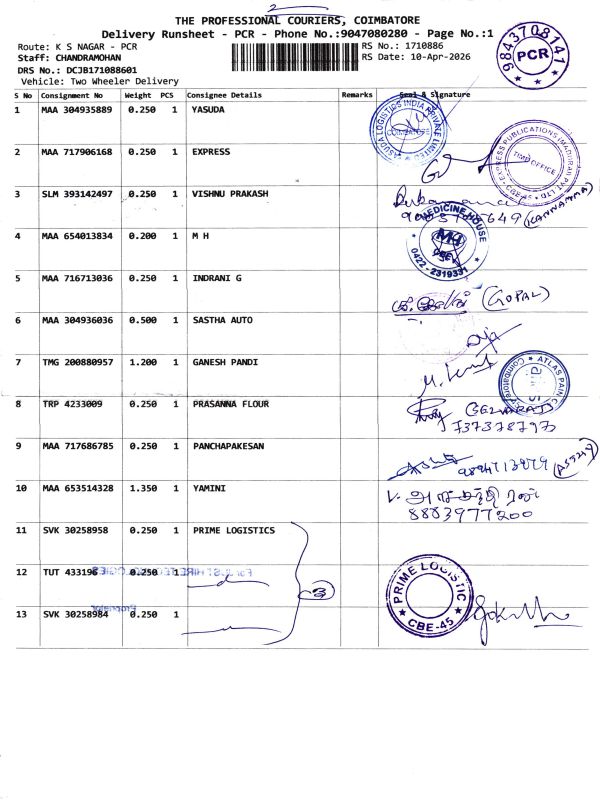 2
THE PROFESSIONAL COURIERS, COIMBATORE
Delivery Runsheet - PCR - Phone No.:9047080280 - Page No.:1
Route: K S NAGAR - PCR
RS No.: 1710886
Staff: CHANDRAMOHAN
RS Date: 10-Apr-2026
DRS No.: DCJB171088601
Vehicle: Two Wheeler Delivery
9843708141
PCR
S No Consignment No Weight PCS Consignee Details Remarks Seal & Signature
1 MAA 304935889 0.250 1 YASUDA
YASUDA LOGISTICS INDIA PRIVATE LIMITED
COIMBATORE
2 MAA 717906168 0.250 1 EXPRESS
EXPRESS PUBLICATIONS (MADURAI) PVT. LTD.
TIME OFFICE
CBE-45
3 SLM 393142497 0.250 1 VISHNU PRAKASH
(KANNAMMA)
4 MAA 654013834 0.200 1 M H
MEDICINE HOUSE
MH
0422 - 2319331
5 MAA 716713036 0.250 1 INDRANI G
(GOPAL)
6 MAA 304936036 0.500 1 SASTHA AUTO
7 TMG 200880957 1.200 1 GANESH PANDI
ATLAS PAIN
Coimbatore
8 TRP 4233009 0.250 1 PRASANNA FLOUR
9 MAA 717686785 0.250 1 PANCHAPAKESAN
10 MAA 653514328 1.350 1 YAMINI
8883977200
11 SVK 30258958 0.250 1 PRIME LOGISTICS
12 TUT 433196 0.250 1
3
13 SVK 30258984 0.250 1
Proprietor
PRIME LOGISTIC
CBE-45